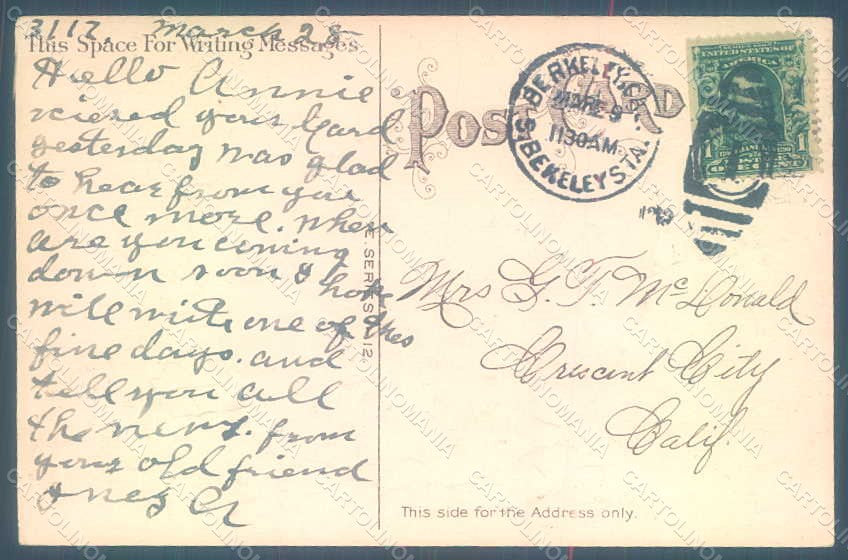 3117. March 28
This Space For Writing Messages
Hello Annie
recieved your Card
yesterday was glad
to hear from you
once more. when
are you coming
down soon I hope
will write one of thes
fine days. and
tell you all
the news. from
your old friend
Inez A
E. SERIES 12
POST CARD
BERKELEY, CAL.
MAR
9
1130AM
S. BEKELEY STA.
SERIES 1902
UNITED STATES OF
AMERICA
1
ONE CENT
Mrs G. T. McDonald
Crescent City
Calif.
This side for the Address only.
CARTOLINOMANIA